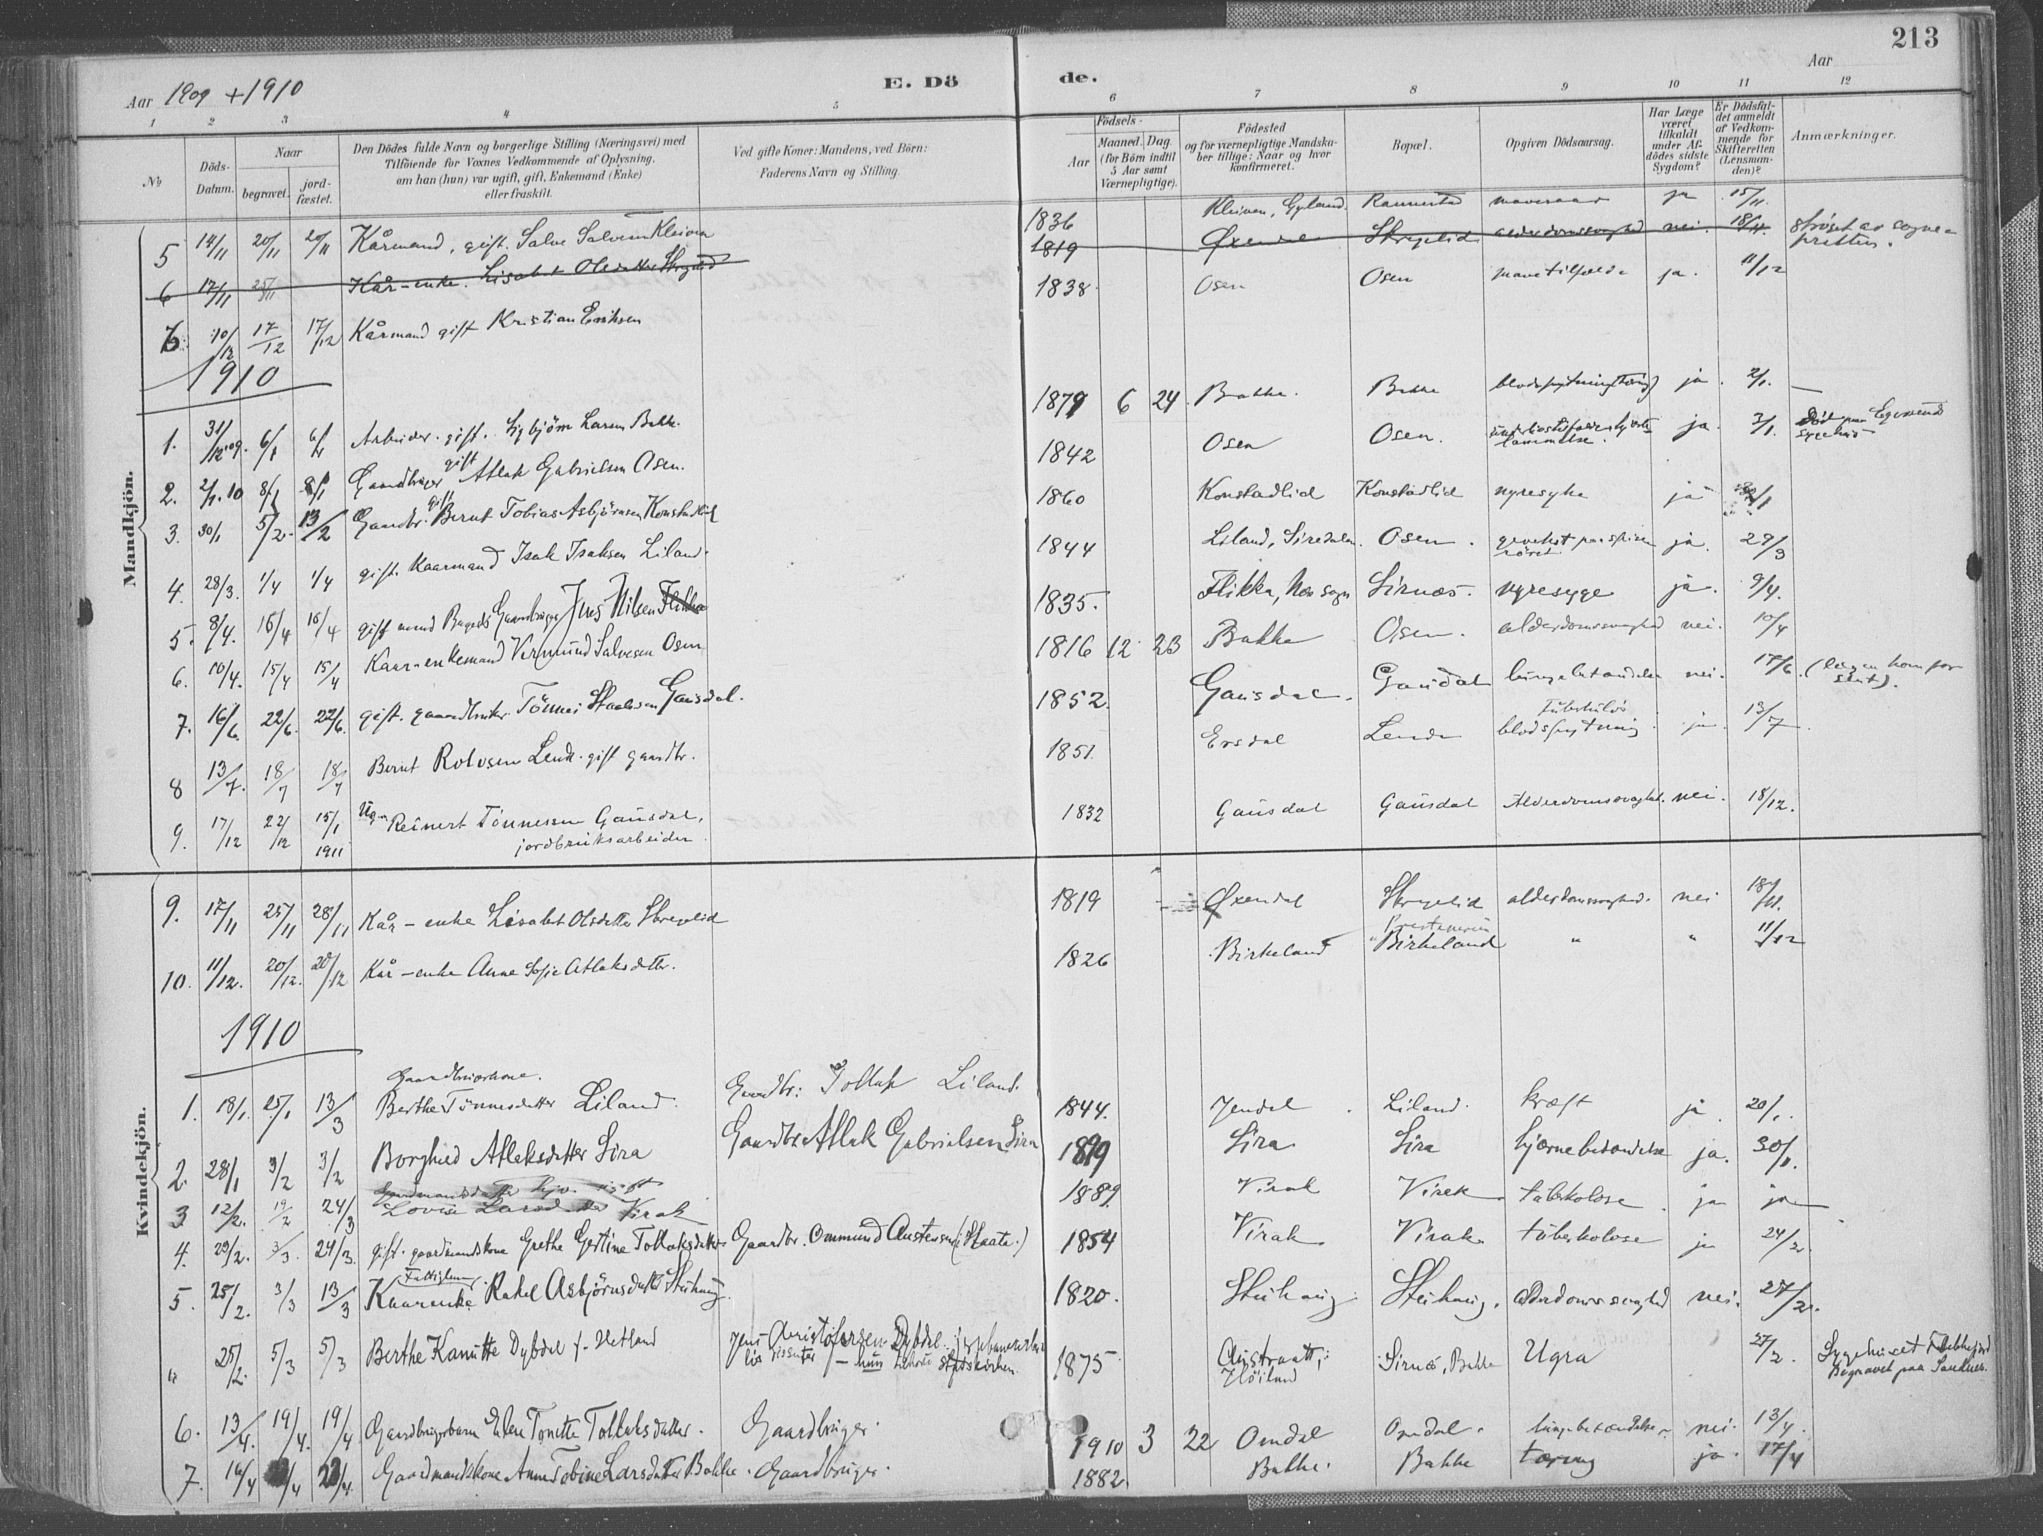 213
Aar 1909 + 1910
E. Dö de.
Aar
1 2 3 4 5 6 7 8 9 10 11 12
№
Döds-Datum.
Naar
begravet.
jord-fæstet.
Den Dödes fulde Navn og borgerlige Stilling (Næringsvei) med
Tilföiende for Voxnes Vedkommende af Oplysning,
om han (hun) var ugift, gift, Enkemand (Enke)
eller fraskilt.
Ved gifte Koner: Mandens, ved Börn:
Faderens Navn og Stilling.
Födsels-
Aar
Maaned. Dag.
(for Börn indtil
5 Aar samt
Værnepligtige).
Födested
og for værnepligtige Mandska-
ber tillige: Naar og hvor
konfirmeret.
Bopæl.
Opgiven Dödsaarsag.
Har Læge
været
tilkaldt
under Af-
dödes sidste
Sygdom?
Er Dödsfal-
det anmeldt
af Vedkom-
mende for
Skifteretten
(Lensman-
den)?
Anmærkninger.
Mandkjön.
5 14/11 20/11 20/11 Kårmand, gift. Salve Salvesen Kleiven 1836 Kleiven, Gyland. Rannestad mavesaar ja 15/11
6 17/11 25/11 Kår-enke. Lisabet Olsdatter Skregelid 1819 Øxendal Skregelid alderdomssvaghed nei. 18/11. strøket av sogne-presten.
6. 10/12 17/12 17/12 Kårmand gift Kristian Eriksen 1838 Osen Osen mavetilfælde ja. 11/12
1910
1. 31/12 09. 6/1 6/1 Arbeider. gift. Sigbjörn Larsen Bakke. 1879 6 24. Bakke. Bakke blodspytning (tæring) ja. 2/1.
2. 2/1. 10 8/1 8/1 Gaardbruger gift Atlak Gabrielsen Osen. 1842 Osen Osen. ja. 3/1. Egersund
3. 30/1 5/2 13/2 Gaardbr. gift Bernt Tobias Asbjörnsen Konstadlid 1860 Konstadlid Konstadlid nyresyke ja
4. 28/3. 1/4 1/4 gift. Kaarmand Isak Isaksen Liland. 1844 Liland, Siredalen. Osen. ja. 29/3
5. 8/4. 16/4 16/4 gift mand Gaardbruger Jens Nilsen Flikka 1835. Flikka, Nes sogn Sirnæs. nyresyge ja. 9/4.
6. 10/4. 15/4 15/4 Kaar-enkemand Vermund Salvesen Osen 1816 12 23 Bakke Osen. alderdomssvaghed nei. 10/4
7. 16/6. 22/6. 22/6. gift. gaardbruker Tönnes Gausdal. 1852. Gausdal. Gausdal lungebetændelse nei. 17/6. (lægen kom for sent).
8 13/7. 18/7 18/7 Bernt Rolvsen Lende. gift gaardbr. 1851. Ersdal Lende Tuberkuløs blodspytning ja. 13/7.
9. 17/12 22/12 15/1 1911 Ug. Reinert Tönnesen Gausdal, jordbruksarbeider. 1832 Gausdal Gausdal Alderdomssvaghet. nei. 18/12.
Kvindekjön.
9. 17/11 25/11 28/11 Kår-enke Lisabet Olsdatter Skregelid 1819 Øxendal Skregelid alderdomssvaghed. nei 18/11.
10. 11/12. 20/12. 20/12 Kår-enke Anne Sofie Atlaksdtr. 1826 Birkeland Birkeland " " 11/12
1910
1. 18/1. 25/1 13/3 Gaardbrukerkone. Berthe Tönnesdatter Liland. Gaardbr: Tollak Liland. 1844. Jendal. Liland. kræft ja. 20/1.
2. 28/1 3/2 3/2 Borghild Atlaksdatter Sira Gaardbr. Atlak Gabrielsen Sira 1899 Sira Sira hjernebetændelse ja. 30/1.
3 12/2. 19/2 24/3 Lovise Virak 1889. Virak Virak tuberkolose. ja ja
4. 23/2. 3/3. 24/3. gift. gaardmandskone Grethe Gertine Tollaksdatter Gaardbr. Ommund Austensen (Skaate.) 1854 Virak Virak. tuberkolose ja 24/2.
5. 25/2. 3/3 13/3 Fattiglem. Kaarenke Rakel Asbjörnsdatter Stuhaug. 1820. Stuhaug. Stuhaug. alderdomssvaghed nei. 27/2.
" 25/2. 5/3 5/3 Berthe Kanutte Dybdal f. Vetland Jens Kristofersen Dybdal. 1875 Austraatt, Höiland Sirnæs, Bakke Ugra 27/2. Sygehuset Flekkefjord Begravet paa Sandnes.
6. 13/4. 19/4. 19/4 Gaardbrugerbarn Elen Tonette Tollaksdatter. Gaardbruger. 1910 3 22 Omdal Omdal. lungebetændelse. nei. 13/4.
7. 16/4 /4 23/4. Gaardmandskone Anne Tobine Larsdatter Bakke. Gaardbruger. 1882. Bakke. Bakke tæring ja. 17/4